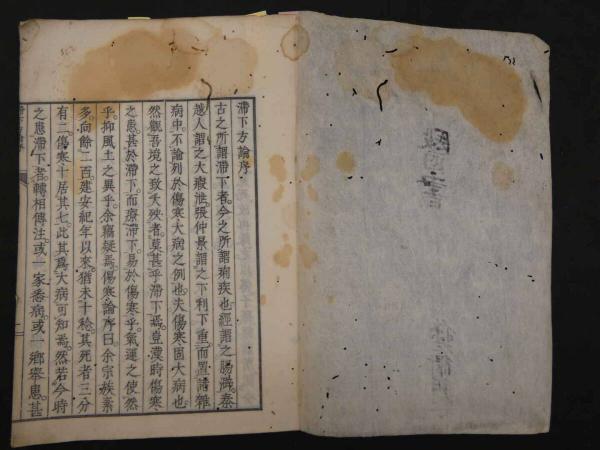 滯下方論序
古之所謂滯下者。今之所謂痢疾也。經謂之腸澼。秦
越人謂之大瘕泄。張仲景謂之下利下重。而置諸雜
病中。不論列於傷寒大病之例也。夫傷寒固大病也。
然觀吾境之致夭殃者。莫甚乎滯下焉。豈漢時傷寒
之患甚於滯下。而療滯下。易於傷寒乎。氣運之使然
乎。抑風土之異乎。余竊疑焉。傷寒論序曰。余宗族素
多。向餘二百。建安紀年以來。猶未十稔。其死者三分
有二。傷寒十居其七。此其爲大病可知焉。然若今時
之患滯下者。轉相傳注。或一家悉病。或一鄉舉患。甚